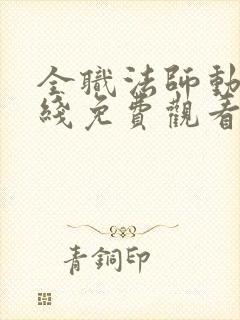 全職法師動
綫免費觀看
青銅印